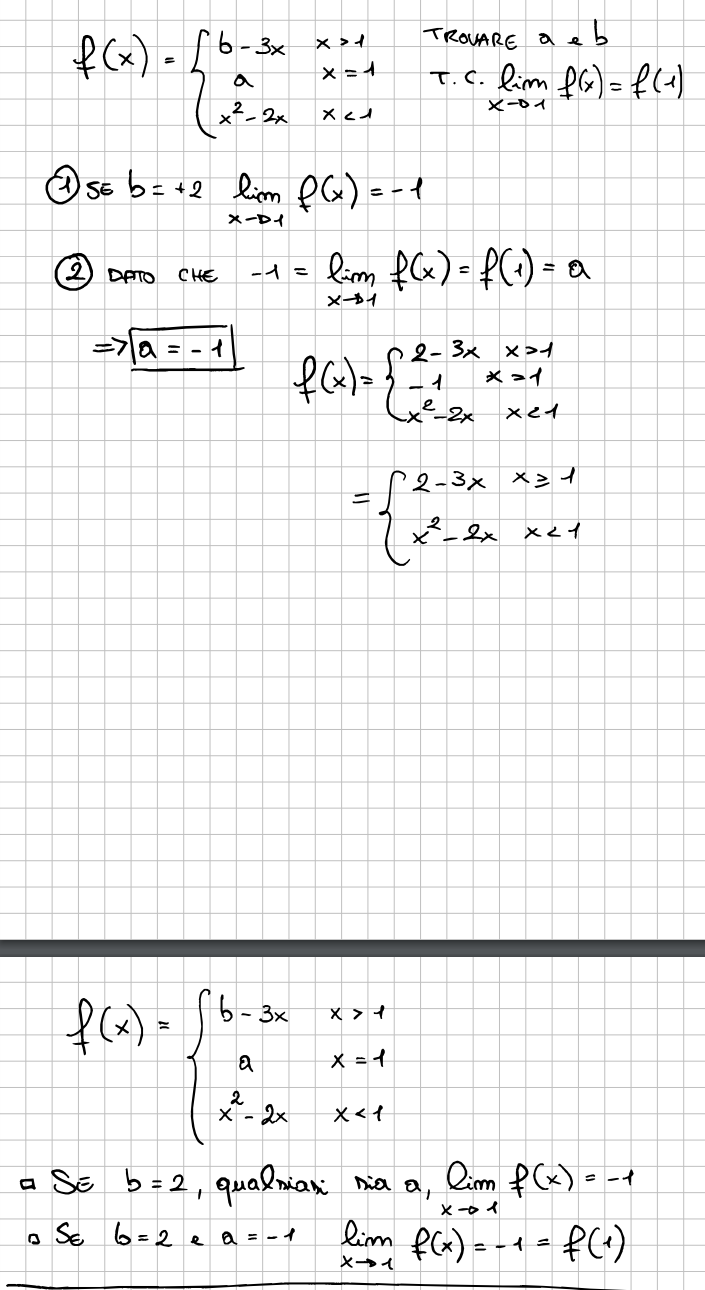 f(x) = { b - 3x x > 1 TROVARE a e b
a x = 1 T.C. lim f(x) = f(1)
x² - 2x x < 1 x→1
① SE b = +2 lim f(x) = -1
x→1
② DATO CHE -1 = lim f(x) = f(1) = a
x→1
=> a = -1
f(x) = { 2 - 3x x > 1
-1 x = 1
x² - 2x x < 1
= { 2 - 3x x ≥ 1
x² - 2x x < 1
f(x) = { b - 3x x > 1
a x = 1
x² - 2x x < 1
▫ SE b = 2, qualsiasi sia a, lim f(x) = -1
x→1
▫ SE b = 2 e a = -1 lim f(x) = -1 = f(1)
x→1